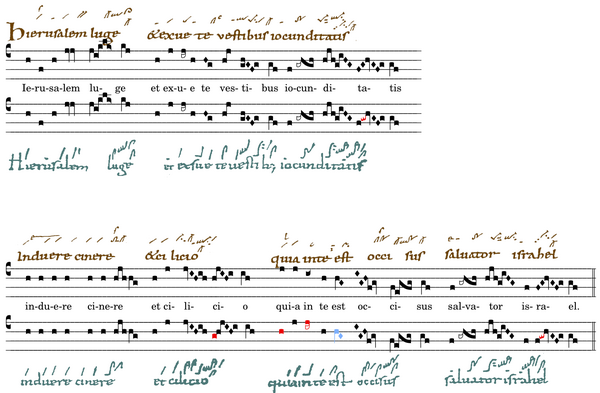 Hierusalem luge & exue te vestibus iocunditatis
Ie-ru-sa-lem lu- ge et ex-u-e te ves-ti- bus io-cun- di- ta- tis
Hierusalem luge et exue te vestib; iocunditatis
Induere cinere & cilicio quia in te est occi sus salvator israhel
in-du-e-re ci-ne-re et ci-li- ci- o qui-a in te est oc- ci- sus sal-va- tor is-ra- el.
induere cinere et cilicio quia in te est occisus salvator israhel